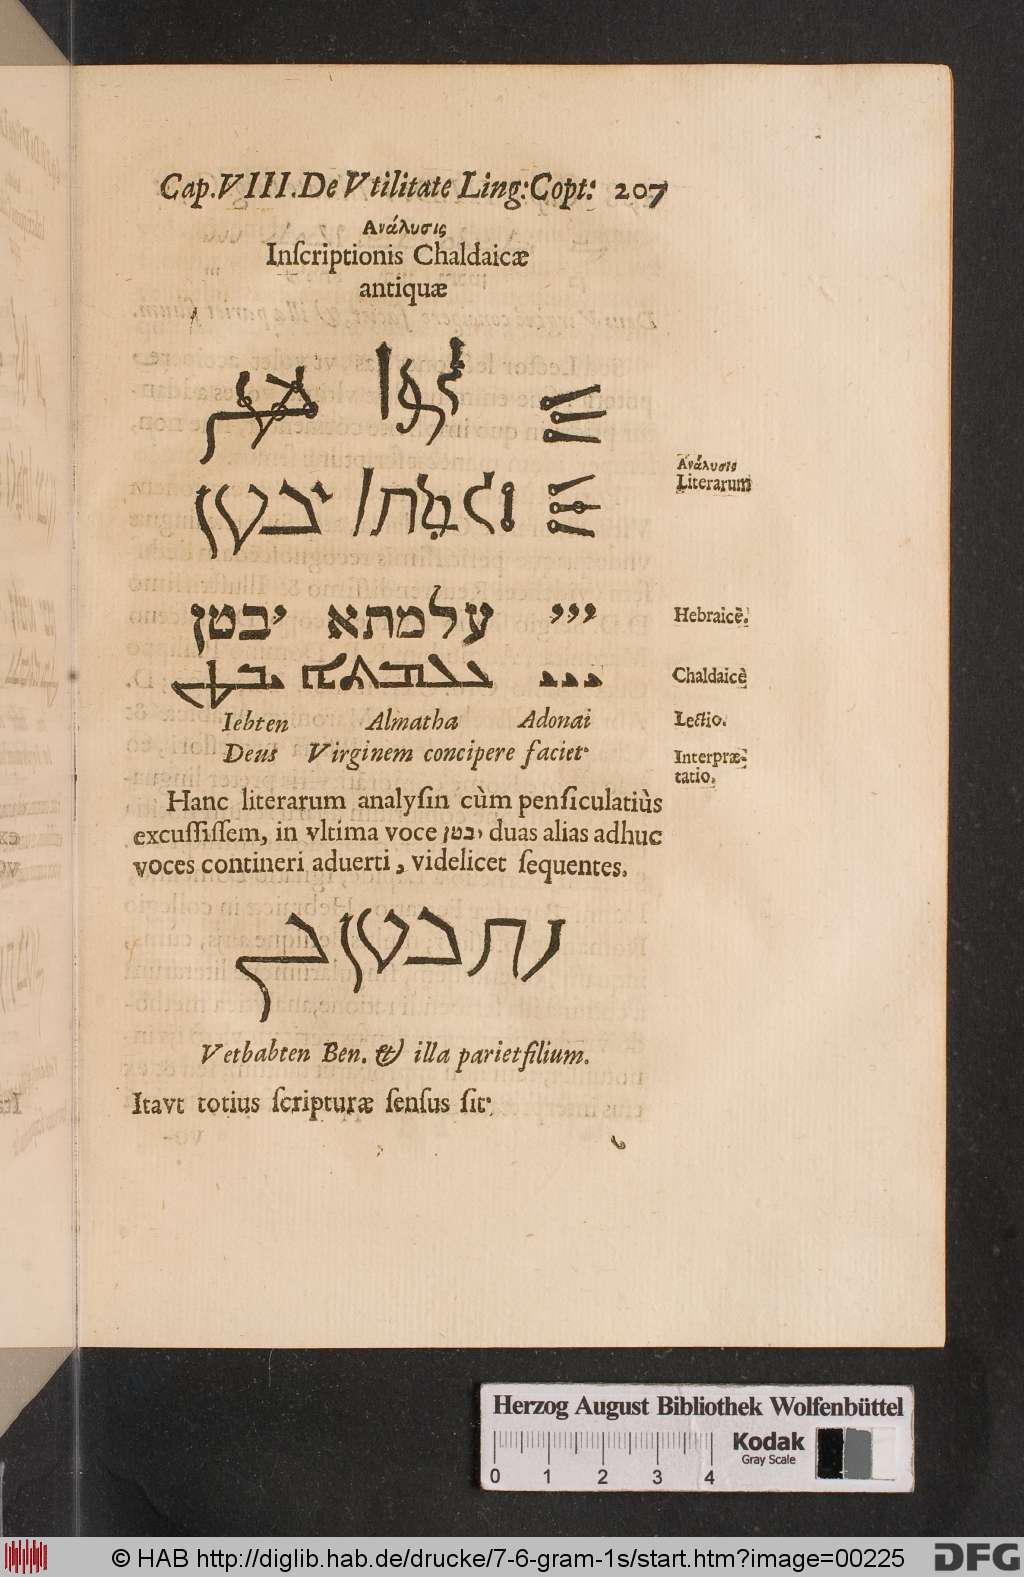 Cap. VIII. De Vtilitate Ling: Copt: 207
Ανάλυσις
Inſcriptionis Chaldaicæ
antiquæ
Ανάλυσις
Literarum
ייי עלמתא יבטן
Hebraicè.
Chaldaicè
Iebten Almatha Adonai
Lectio.
Deus Virginem concipere faciet
Interpræ-
tatio.
Hanc literarum analyſin cùm penſiculatiùs
excuſſiſſem, in vltima voce יבטן duas alias adhuc
voces contineri aduerti, videlicet ſequentes.
ותבטן בן
Vetbabten Ben. & illa pariet filium.
Itavt totius ſcripturæ ſenſus ſit:
vo-
Herzog August Bibliothek Wolfenbüttel
Kodak
Gray Scale
0 1 2 3 4
© HAB http://diglib.hab.de/drucke/7-6-gram-1s/start.htm?image=00225
DFG